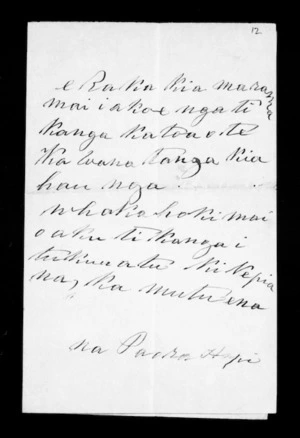 12
e Raka kia marama
mai i akoe nga ti
kanga katoa o te
Kawana tanga kia
hau nga.
whakahoki mai
o aku tikanga i
tukua atu ki Kepia
na, ka mutu ena
na Paora Hopi